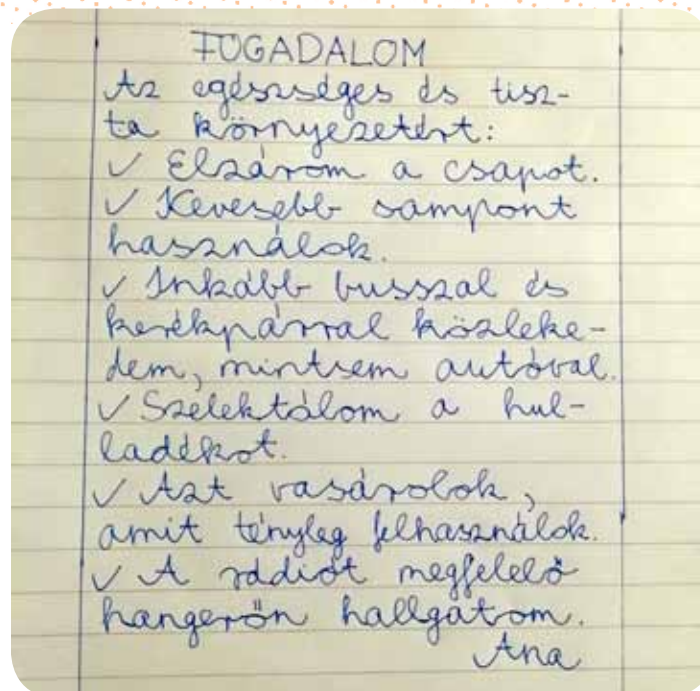 FOGADALOM
Az egészséges és tisz-
ta környezetért:
✓ Elzárom a csapot.
✓ Kevesebb sampont
használok.
✓ Inkább busszal és
kerékpárral közleke-
dem, mintsem autóval.
✓ Szelektálom a hul-
ladékot.
✓ Azt vasárolok,
amit tényleg felhasználok.
✓ A rádiót megfelelő
hangerőn hallgatom.
Ana